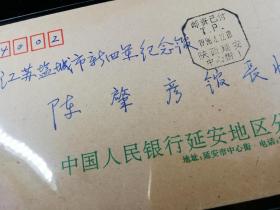 4002
邮资已付
T.P.
陕西延安
中心街
江苏盐城市新四军纪念馆
陈肇彦馆长
中国人民银行延安地区分
地址:延安市中心街·电话: